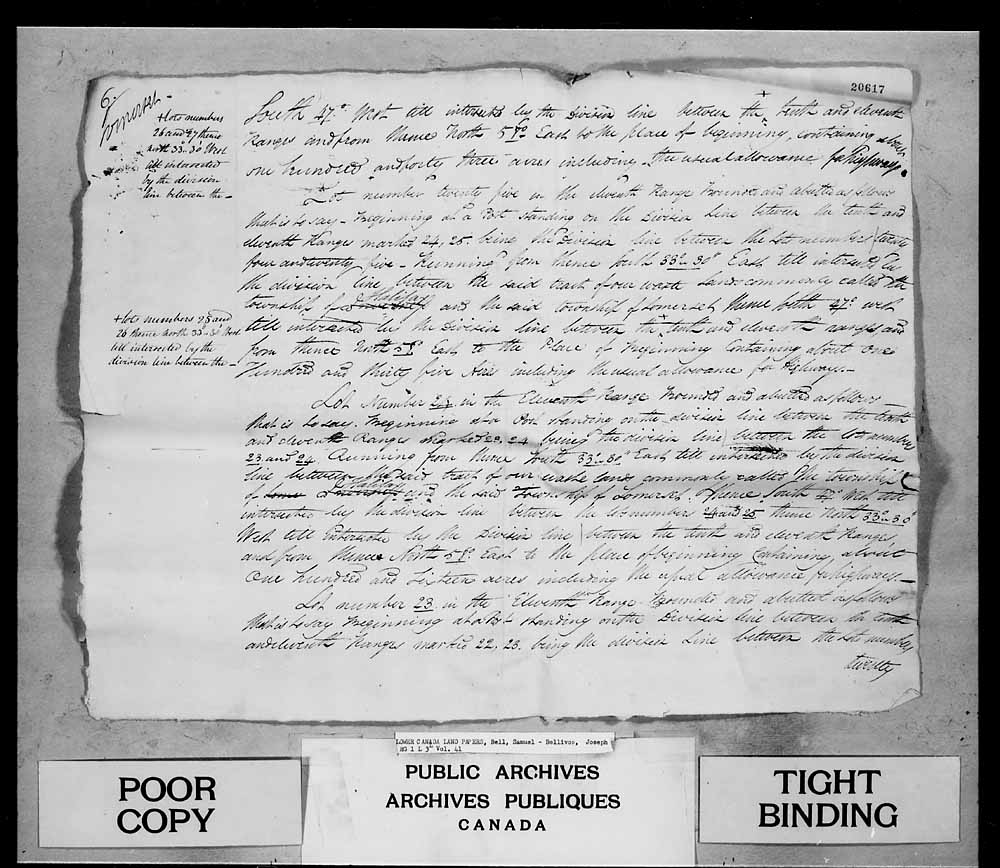 20617
6/
Somerset -
+ lots numbers
26 and 27 thence
north 33°.30' West
till intersected
by the division
line between the -
South 47°. West till intersected by the Division line between the + tenth and eleventh
Ranges and from thence North 57° East to the place of beginning, containing about
one hundred and forty three acres including the usual allowance for Highways.
Lot number twenty five in the eleventh Range Bounded and abutted as follows
that is to say - Beginning at a Post standing on the Division line between the tenth and
eleventh Ranges marked 24, 25. being the Division line between the Lots numbers twenty
four and twenty five - Running from thence South 33°.30' East till intersected by
the division line between the said tract of our waste Lands commonly called the
township of Halifax and the said township of Somerset thence South 47° west
till intersected by the Division line between the + tenth and eleventh ranges and
from thence North 57° East to the Place of Beginning Containing about One
Hundred and thirty five Acres including the usual allowance for Highways -
+ lots numbers 25 and
26 thence North 33°.30' West
till intersected by the
division line between the -
Lot Number 24 in the Eleventh Range Bounded and abutted as follows
that is to say. Beginning at a Post standing on the division line between the tenth
and eleventh Ranges marked 23, 24 being the division line between the lots numbers
23 and 24 Running from thence South 33°.30' East till intersected by the division
line between the said tract of our waste land commonly called the township
of Halifax and the said Township of Somerset thence South 47° West till
intersected by the division line between the lots numbers 24 and 25 thence North 33°.30'
West till intersected by the Division line between the tenth and eleventh Ranges,
and from thence North 57° East to the place of beginning Containing about
One hundred and Sixteen acres including the usual allowance for highways -
Lot number 23 in the Eleventh Range Bounded and abutted as follows
that is to say Beginning at a Post standing on the Division line between the tenth
and eleventh Ranges marked 22, 23. being the division Line between the lots numbers
twenty
LOWER CANADA LAND PAPERS, Bell, Samuel - Bellivoe, Joseph
RG 1 L 3" Vol. 41
POOR
COPY
PUBLIC ARCHIVES
ARCHIVES PUBLIQUES
CANADA
TIGHT
BINDING